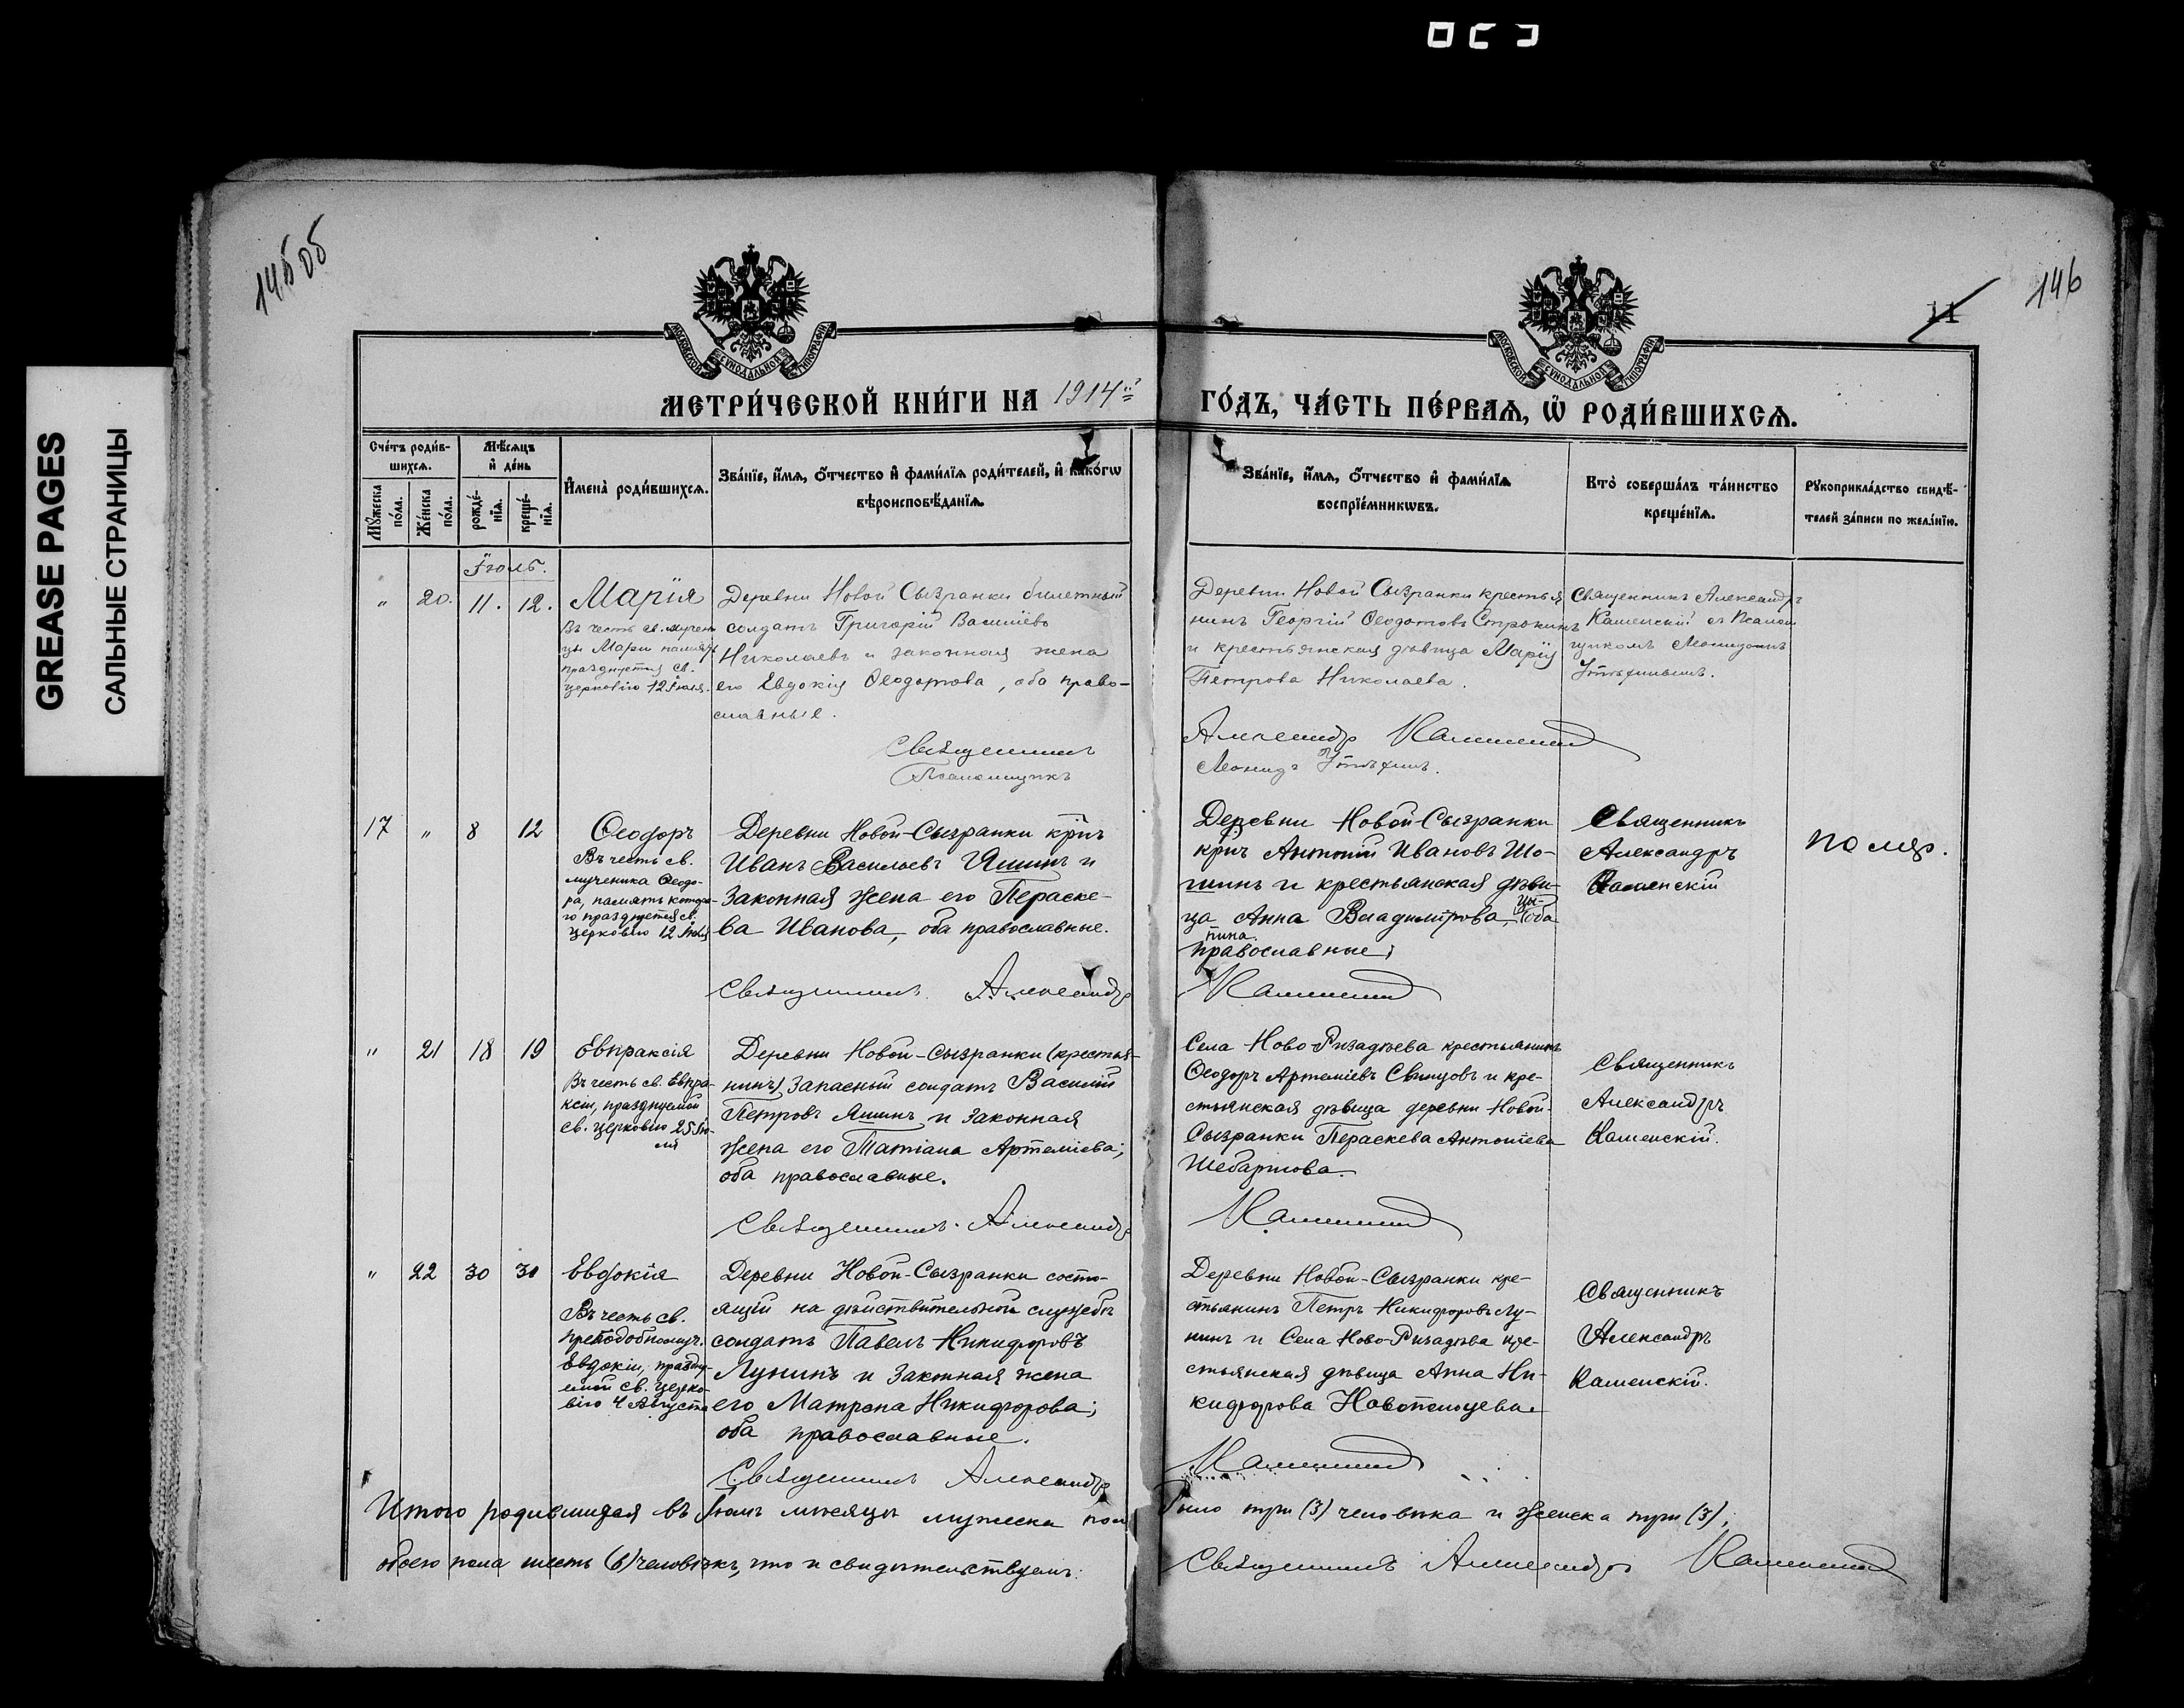 GREASE PAGES
САЛЬНЫЕ СТРАНИЦЫ
145 об
146
11
МОСКОВСКОЙ СѴНОДАЛЬНОЙ ТИПОГРАФІИ
МОСКОВСКОЙ СѴНОДАЛЬНОЙ ТИПОГРАФІИ
МЕТРИ́ЧЕСКОЙ КНИ́ГИ НА 1914й
ГО́ДЪ, ЧА́СТЬ ПЕ́РВАѦ, Ѽ РОДИ́ВШИХСѦ.
Сче́тъ роди́в-
шихсѧ.
Мꙋ́жеска
по́ла.
Же́нска
по́ла.
Мѣ́сѧцъ
и҆ де́нь
рожде́-
нїѧ.
креще́-
нїѧ.
И҆мена̀ роди́вшихсѧ.
Зва́нїе, и҆́мѧ, ѻ҆́тчество и҆ фами́лїѧ роди́телей, и҆ како́гѡ
вѣроисповѣ́данїѧ.
Зва́нїе, и҆́мѧ, ѻ҆́тчество и҆ фами́лїѧ
воспрїе́мникѡвъ.
Кто̀ соверша́лъ та́инство
креще́нїѧ.
Рꙋкоприкла́дство свидѣ́-
телей за́писи по жела́нїю.
Іюль.
" 20. 11. 12.
Марія
Въ честь св. мучени
цы Маріи память
празднуется св.
церковію 12 Іюля.
Деревни Новой Сызранки билетный
солдатъ Григорій Василіевъ
Николаевъ и законная жена
его Евдокія Ѳеодотова, оба право-
славные.
Священникъ
Псаломщикъ
Деревни Новой Сызранки крестья
нинъ Георгій Ѳеодотовъ Строкинъ
и крестьянская дѣвица Марія
Петрова Николаева.
Александр Каменскій
Леонидъ Утѣхинъ.
Священникъ Александръ
Каменскій съ Псалом
щикомъ Леонидомъ
Утѣхинымъ.
17 " 8 12
Ѳеодоръ
Въ честь св.
мученика Ѳеодо-
ра, память которо-
го празднуется св.
церковію 12 Іюля
Деревни Новой-Сызранки кр҃нъ
Иванъ Васильевъ Яшинъ и
законная жена его Параске-
ва Иванова, оба православные.
Священникъ Александр
Деревни Новой-Сызранки
кр҃нъ Антоній Ивановъ Шо-
шинъ и крестьянская дѣви-
ца Анна Владимірова Цы- оба
пина
православные;
Каменскій
Священникъ
Александръ
Каменскій
" 21 18 19
Евпраксія
Въ честь св. Евпра-
ксіи, празднуемой
св. церковію 25 Ію-
ля
Деревни Новой-Сызранки (крестья-
нинъ) запасный солдатъ Василій
Петровъ Яшинъ и законная
жена его Татіана Артеміева;
оба православные.
Священникъ Александр
Села Ново-Ризадѣева крестьянинъ
Ѳеодоръ Артеміевъ Свинцовъ и кре-
стьянская дѣвица деревни Новой-
Сызранки Параскева Антоніева
Каменскій
Священникъ
Александръ
Каменскій.
" 22 30 30
Евдокія
Въ честь св.
преподобномуч.
Евдокіи, праздну-
емой св. церко-
вію 4 Августа
Деревни Новой-Сызранки состо-
ящій на дѣйствительной службѣ
солдатъ Павелъ Никифоровъ
Лунинъ и законная жена
его Матрона Никифорова;
оба православные.
Священникъ Александр
Деревни Новой-Сызранки кре-
стьянинъ Петръ Никифоровъ Лу-
нинъ и Села Ново-Ризадѣева кре-
стьянская дѣвица Анна Ни-
кифорова
Каменскій
Священникъ
Александръ
Каменскій.
Итого родившихся въ Іюлѣ мѣсяцѣ мужеска пола было три (3) человѣка и женска три (3),
обоего пола шесть (6) человѣкъ, что и свидѣтельствуемъ:
Священникъ Александр Каменскій